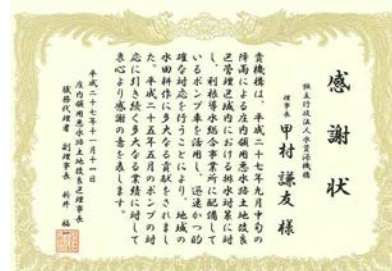 感謝状
独立行政法人水資源機構
理事長 甲村謙友 様
貴機構は、平成二十七年九月中旬の
降雨による庄内領用悪水路土地改良
区管理区域内における排水対策に対
し、利根導水総合事業所に配備して
いるポンプ車を活用し、迅速かつ的
確な対応を行うことにより、地域の
水田耕作に多大なる貢献をされまし
た。平成二十五年五月のポンプの対
応に引き続く多大なる業績に対して
衷心より感謝の意を表します。
平成二十七年十一月十一日
庄内領用悪水路土地改良区理事長
職務代理者 副理事長 新井 福一